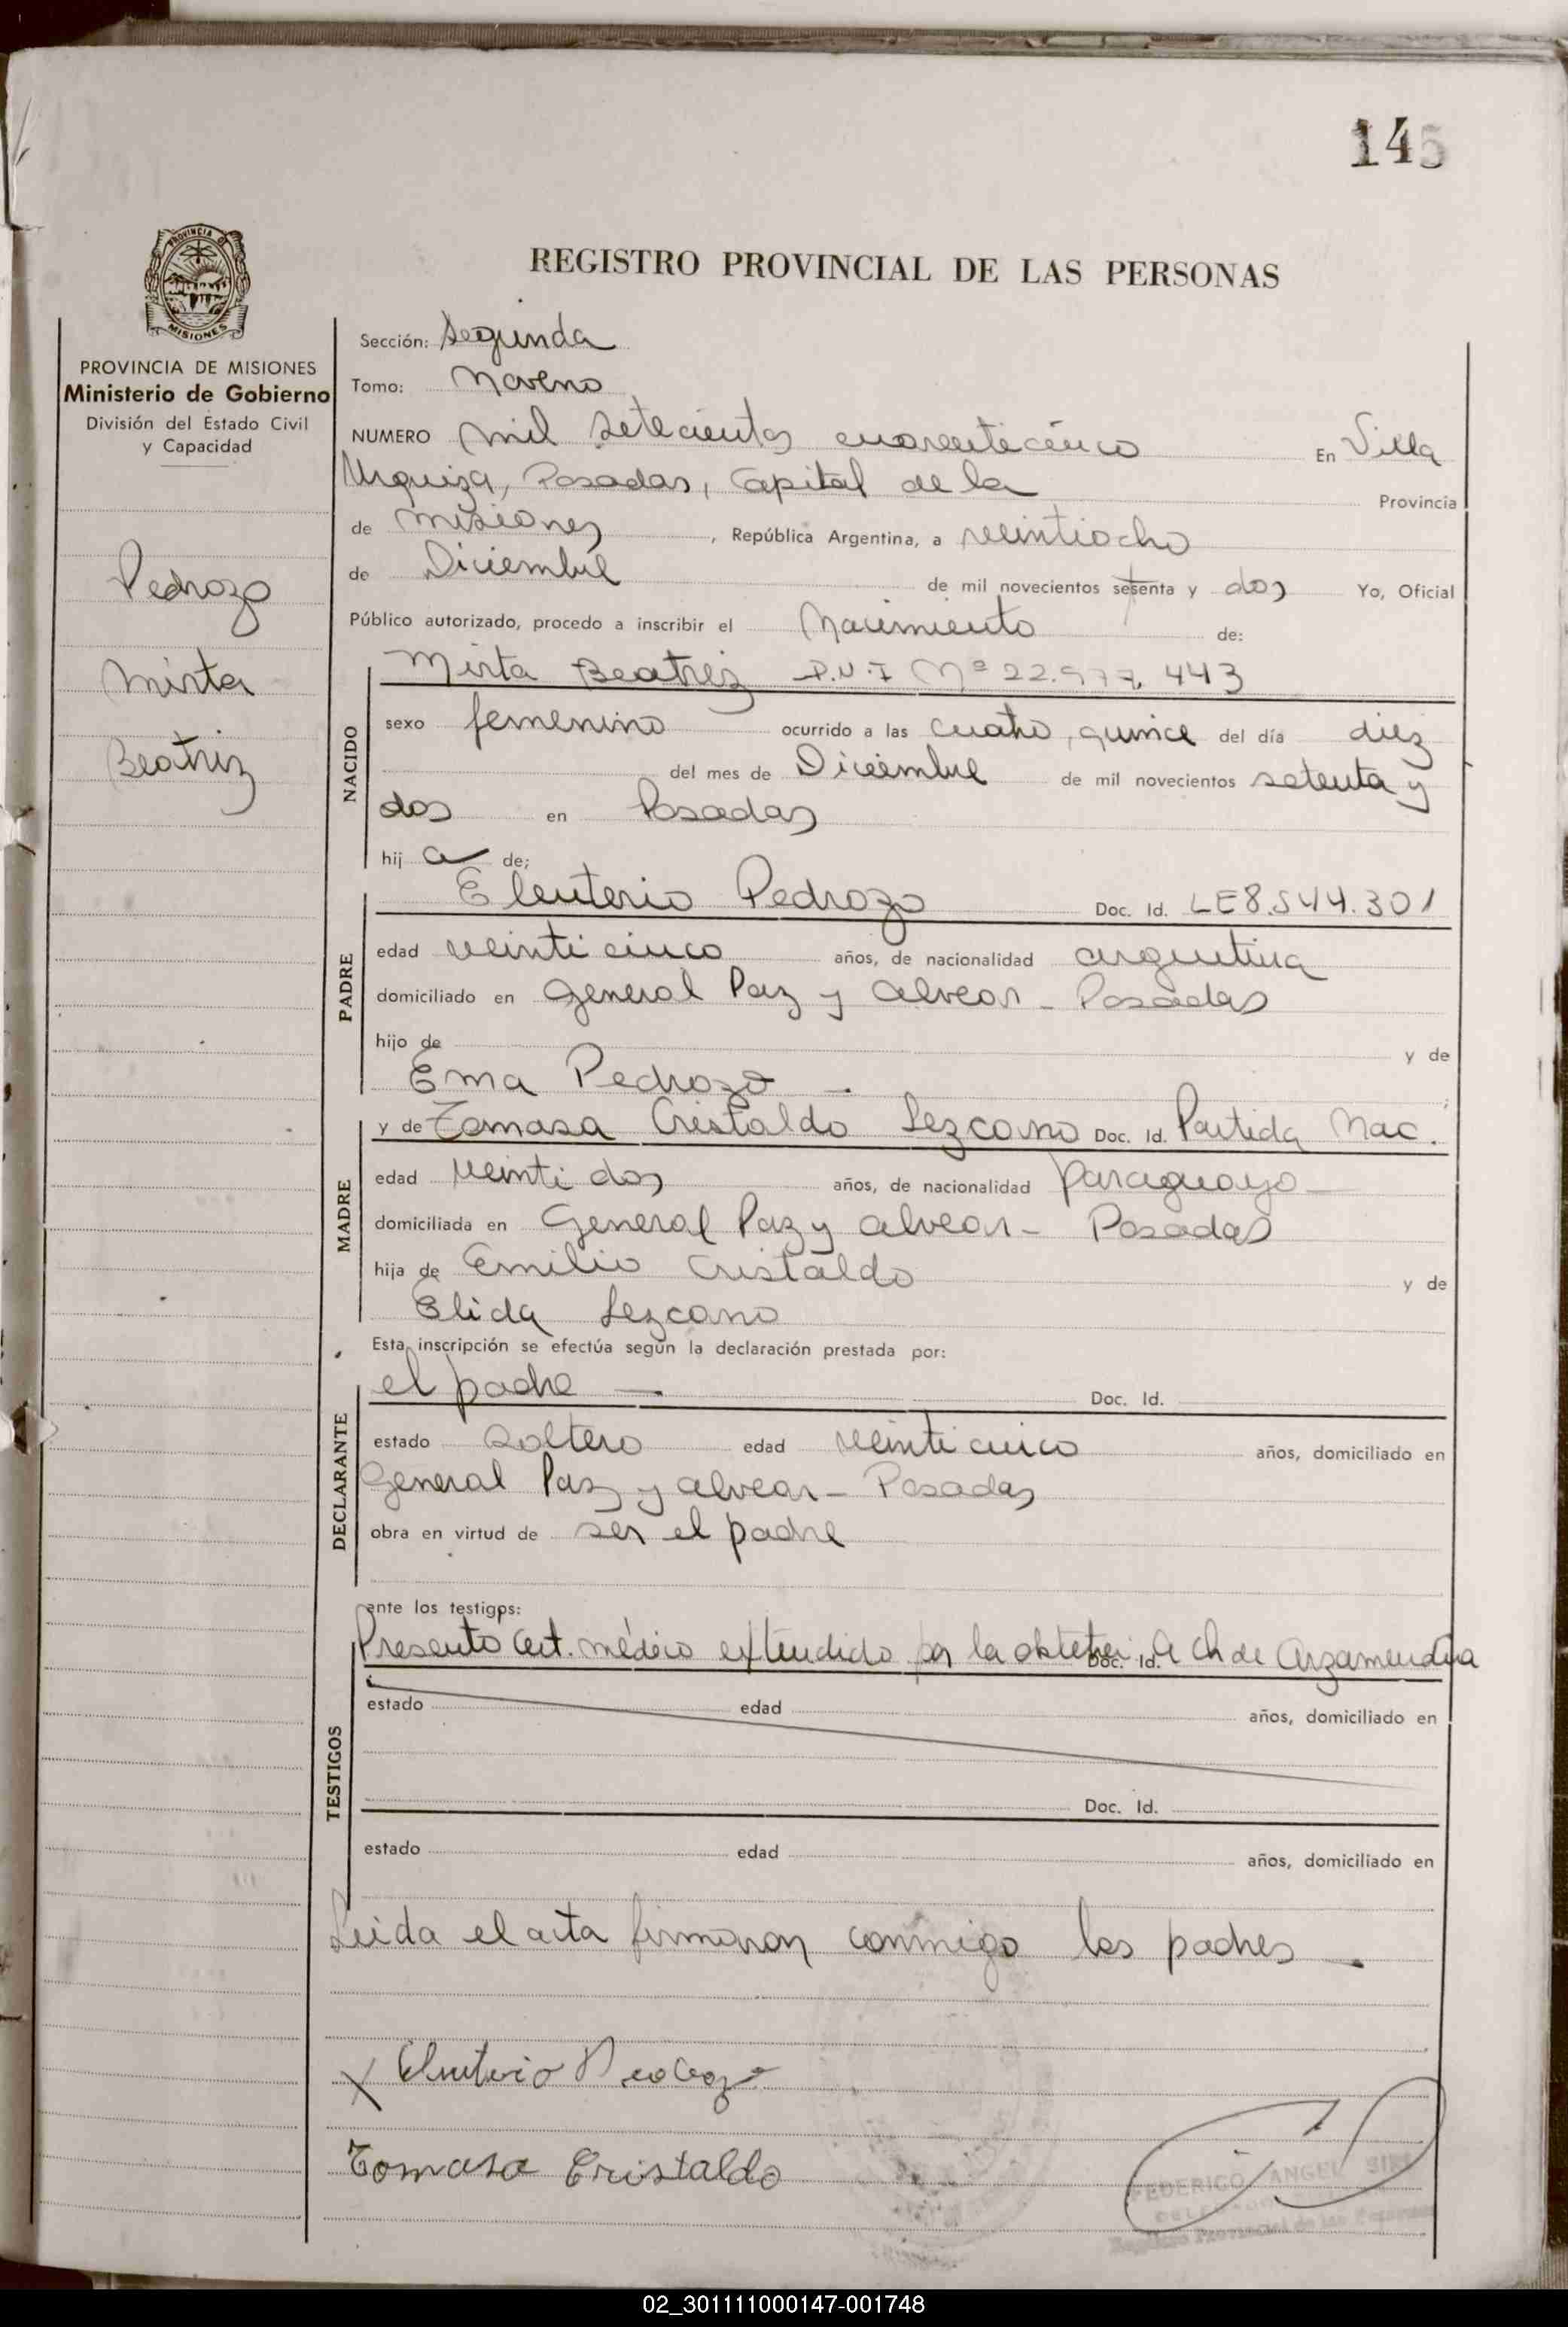 145
REGISTRO PROVINCIAL DE LAS PERSONAS
PROVINCIA DE MISIONES
Ministerio de Gobierno
División del Estado Civil
y Capacidad
Pedrozo
Mirta
Beatriz
Sección: Segunda
Tomo: Noveno
NUMERO mil setecientos cuarenticinco En Villa
Urquiza, Posadas, Capital de la Provincia
de Misiones, República Argentina, a veintiocho
de Diciembre de mil novecientos setenta y dos Yo, Oficial
Público autorizado, procedo a inscribir el Nacimiento de:
Mirta Beatriz D.N.I Nº 22.977.443
NACIDO
sexo femenino ocurrido a las cuatro, quince del día diez
del mes de Diciembre de mil novecientos setenta y
dos en Posadas
hij a de;
Eleuterio Pedrozo Doc. Id. LE 8.544.301
PADRE
edad veinticinco años, de nacionalidad argentina
domiciliado en General Paz y Alvear - Posadas
hijo de y de
Ema Pedrozo —.
y de Tomasa Cristaldo Lezcano Doc. Id. Partida Nac.
MADRE
edad veintidos años, de nacionalidad paraguaya
domiciliada en General Paz y Alvear - Posadas
hija de Emilio Cristaldo y de
Elida Lezcano
Esta inscripción se efectúa según la declaración prestada por:
el padre —. Doc. Id.
DECLARANTE
estado soltero edad veinticinco años, domiciliado en
General Paz y Alvear - Posadas
obra en virtud de ser el padre
ante los testigos:
Presentó Cert. médico extendido por la Doc. Id. Ch de Arzamendia
TESTIGOS
estado edad años, domiciliado en
Doc. Id.
estado edad años, domiciliado en
Leida el acta firmaron conmigo los padres —.
x Eleuterio Pedrozo
Tomasa Cristaldo
FEDERICO ANGEL
Registro Provincial de las Personas
02_301111000147-001748